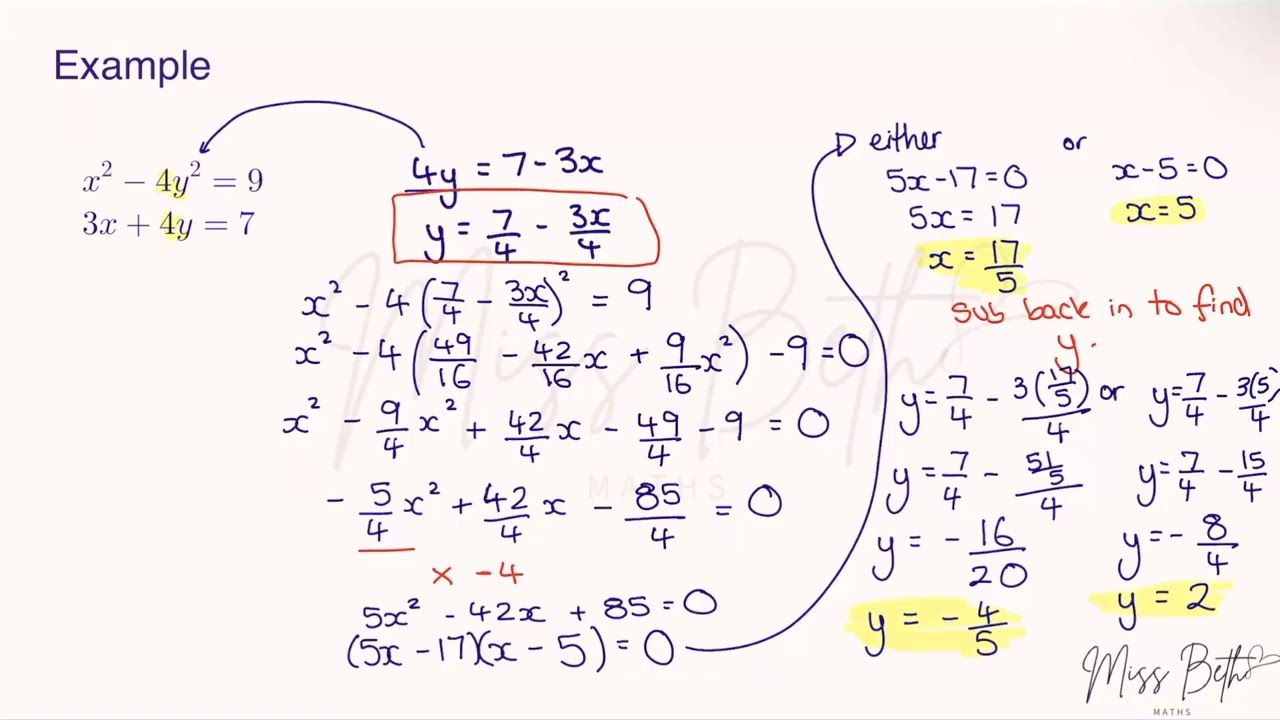 Example
x² − 4y² = 9
3x + 4y = 7
4y = 7 - 3x
y = 7/4 - 3x/4
x² - 4(7/4 - 3x/4)² = 9
x² - 4(49/16 - 42/16 x + 9/16 x²) - 9 = 0
x² - 9/4 x² + 42/4 x - 49/4 - 9 = 0
- 5/4 x² + 42/4 x - 85/4 = 0
x -4
5x² - 42x + 85 = 0
(5x - 17)(x - 5) = 0
either or
5x - 17 = 0
5x = 17
x = 17/5
x - 5 = 0
x = 5
sub back in to find
y.
y = 7/4 - 3(17/5)/4 or y = 7/4 - 3(5)/4
y = 7/4 - 51/5/4
y = - 16/20
y = - 4/5
y = 7/4 - 15/4
y = - 8/4
y = 2
Miss Beth
MATHS
Miss Beth
MATHS